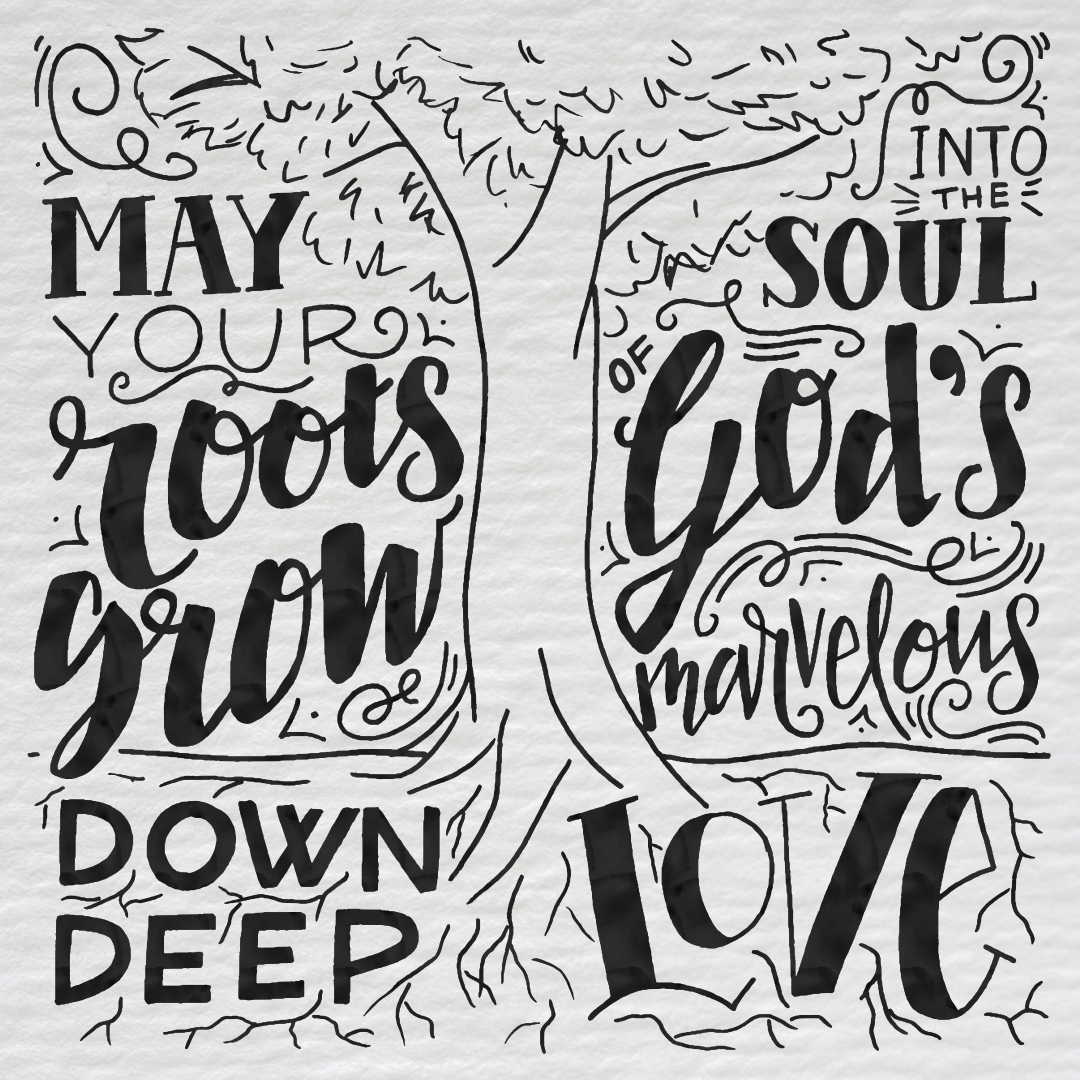 MAY
YOUR
roots
grow
DOWN
DEEP
INTO
THE
SOUL
OF God's
marvelous
LOVE